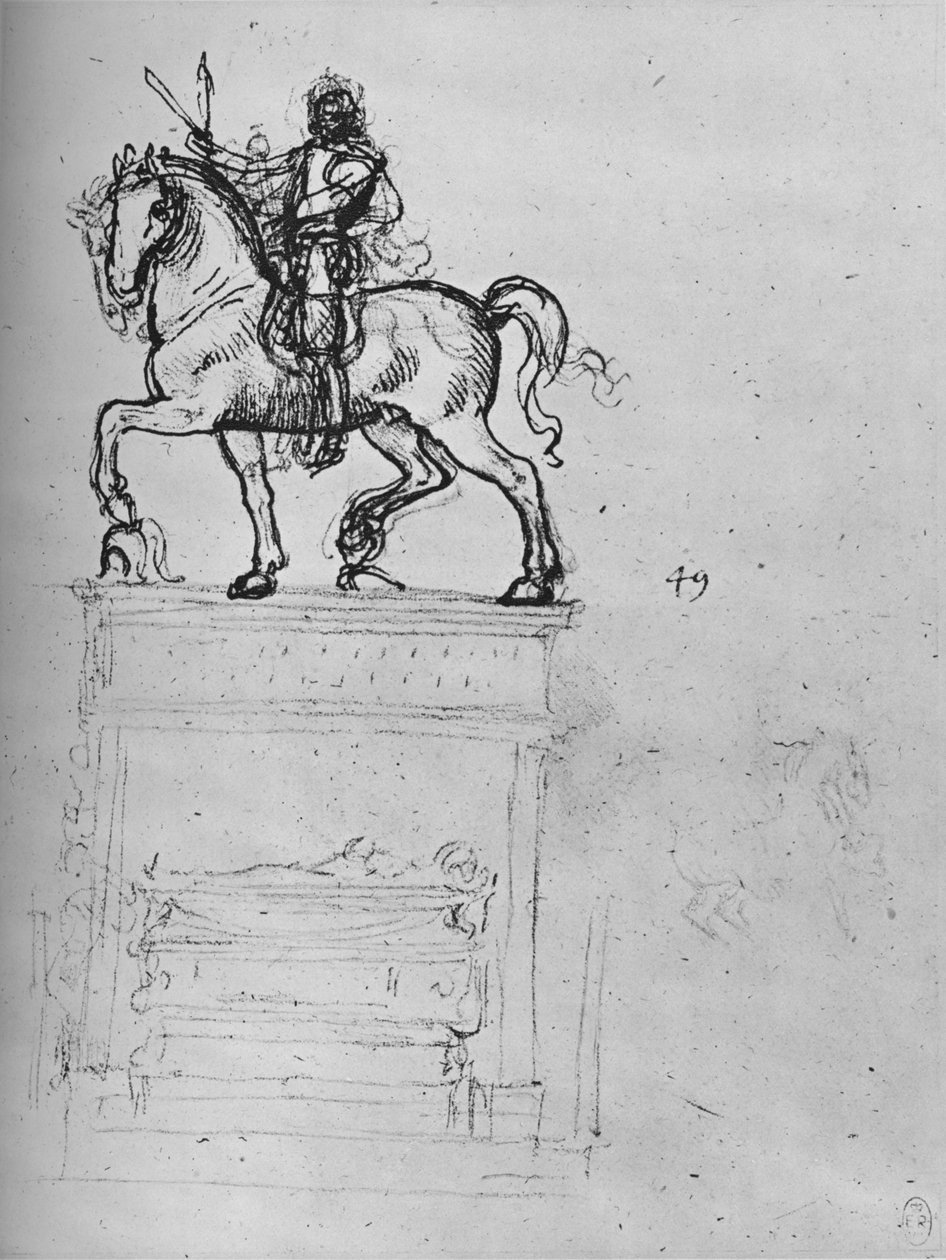 49
ER